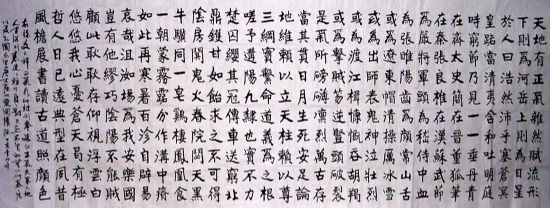 天地有正氣雜然賦流形
下則為河嶽上則為日星
於人曰浩然沛乎塞蒼冥
皇路當清夷含和吐明庭
時窮節乃見一一垂丹青
在齊太史簡在晉董狐筆
在秦張良椎在漢蘇武節
為嚴將軍頭為嵇侍中血
為張睢陽齒為顏常山舌
或為遼東帽清操厲冰雪
或為出師表鬼神泣壯烈
或為渡江楫慷慨吞胡羯
或為擊賊笏逆豎頭破裂
是氣所磅礴凜烈萬古存
當其貫日月生死安足論
地維賴以立天柱賴以尊
三綱實繫命道義為之根
嗟予遘陽九隸也實不力
楚囚纓其冠傳車送窮北
鼎鑊甘如飴求之不可得
陰房闃鬼火春院閟天黑
牛驥同一皂雞棲鳳凰食
一朝蒙霧露分作溝中瘠
如此再寒暑百沴自辟易
哀哉沮洳場為我安樂國
豈有他繆巧陰陽不能賊
顧此耿耿存仰視浮雲白
悠悠我心悲蒼天曷有極
哲人日已遠典型在夙昔
風檐展書讀古道照顏色